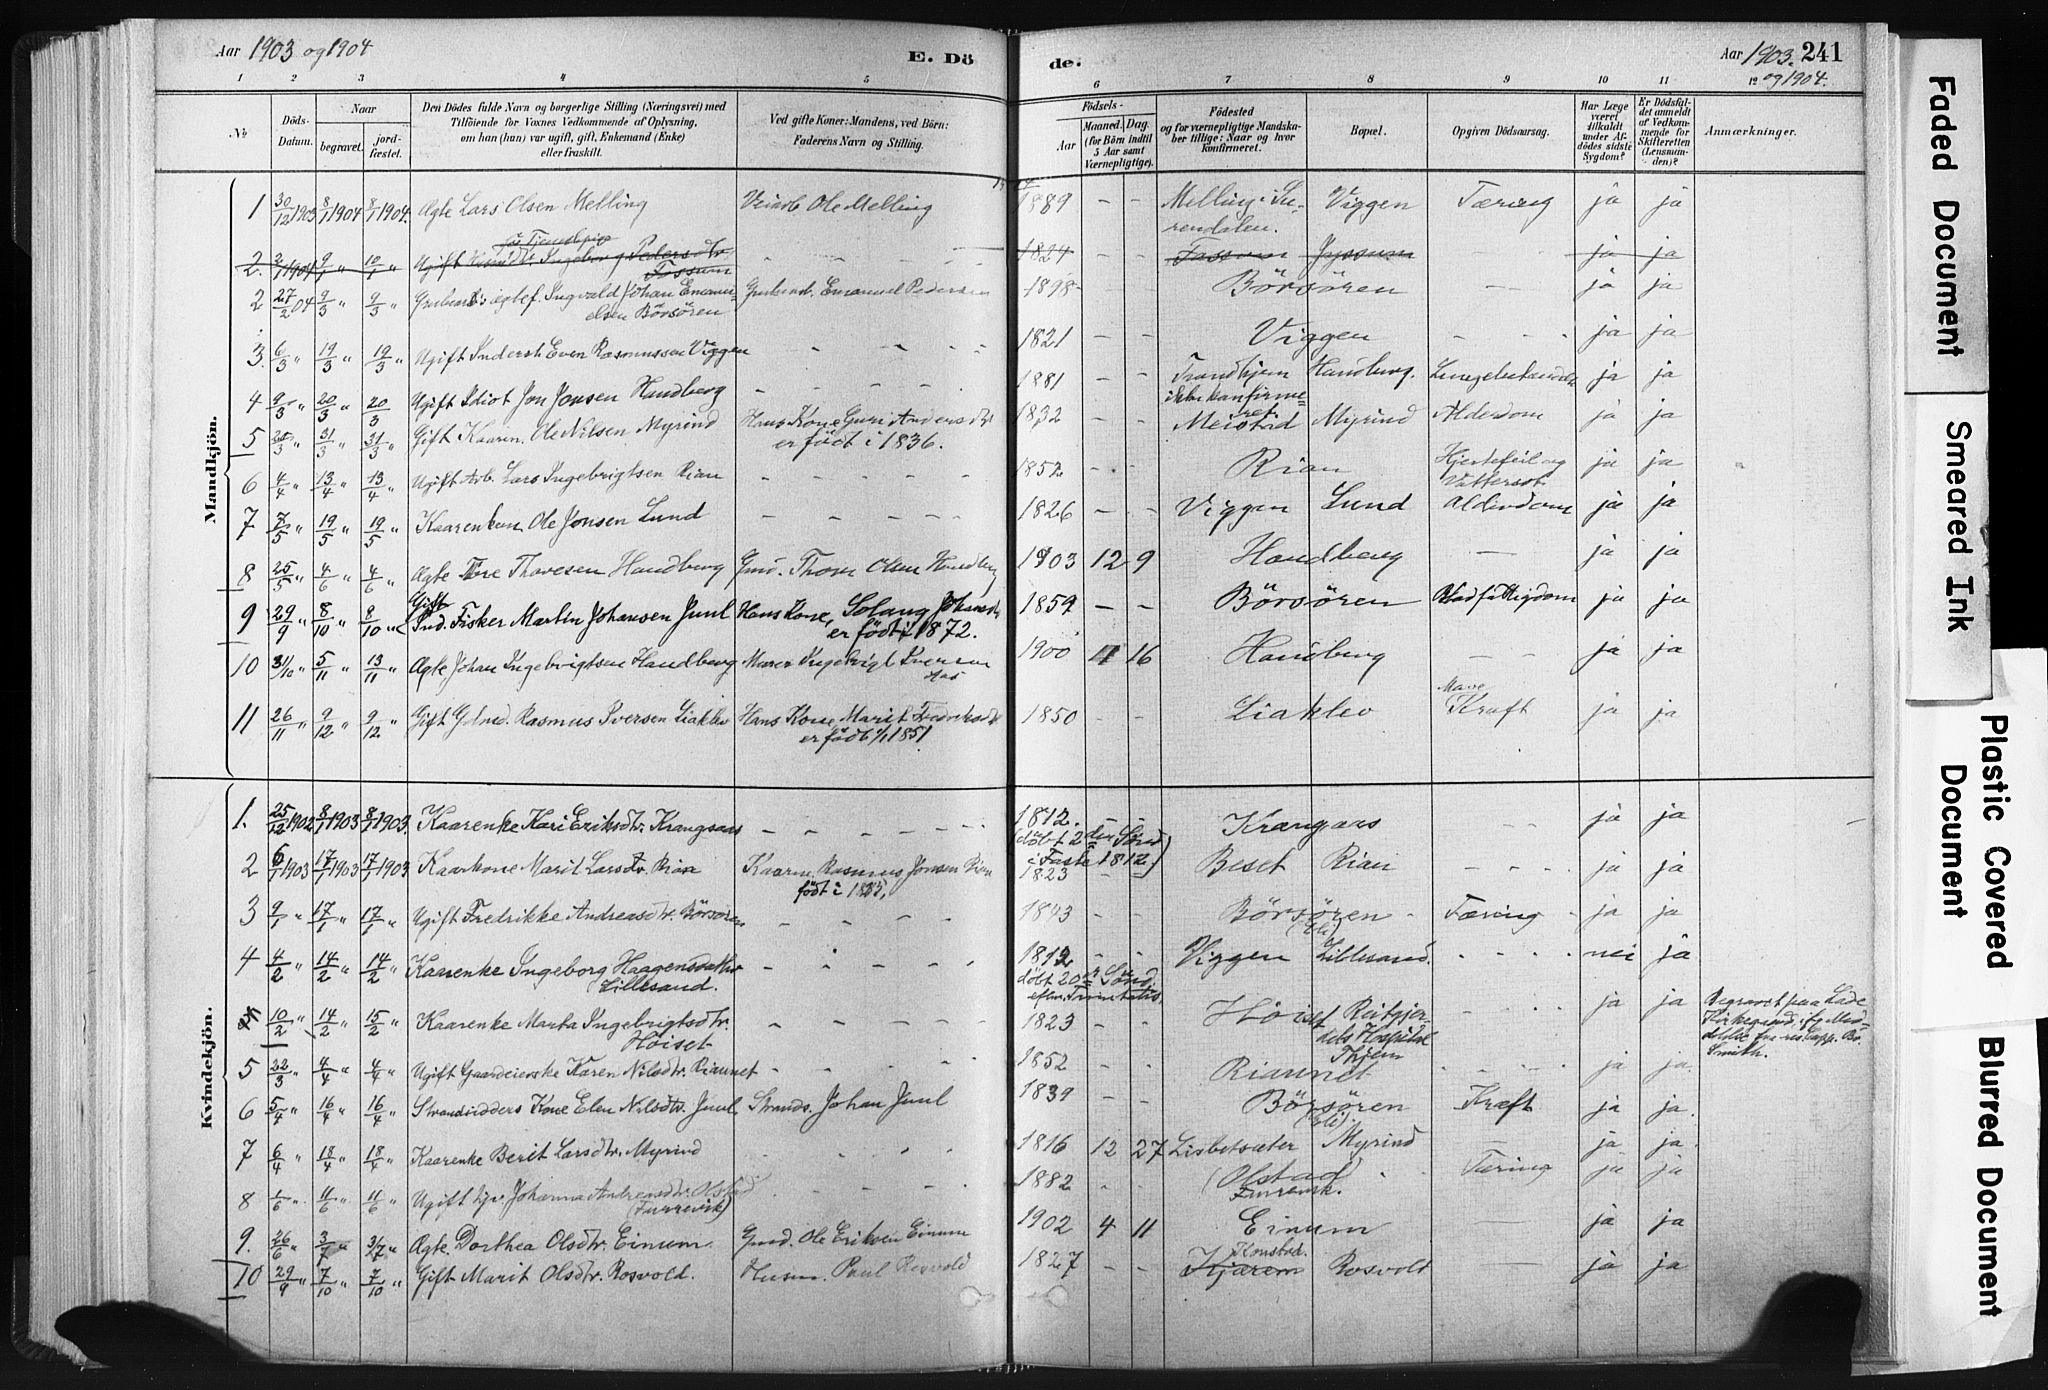 Aar 1903 og 1904
E. Dö
de.
Aar 1903. 241
og 1904.
1 2 3 4 5 6 7 8 9 10 11 12
№
Döds-Datum.
Naar
begravet.
jord-fæstet.
Den Dödes fulde Navn og borgerlige Stilling (Næringsvei) med
Tilföiende for Voxnes Vedkommende af Oplysning,
om han (hun) var ugift, gift, Enkemand (Enke)
eller fraskilt.
Ved gifte Koner: Mandens, ved Börn:
Faderens Navn og Stilling.
Födsels-
Aar
Maaned. Dag.
(for Börn indtil
5 Aar samt
Værnepligtige).
Födested
og for værnepligtige Mandska-
ber tillige: Naar og hvor
konfirmeret.
Bopæl.
Opgiven Dödsaarsag.
Har Læge
været
tilkaldt
under Af-
dödes sidste
Sygdom?
Er Dödsfal-
det anmeldt
af Vedkom-
mende for
Skifteretten
(Lensman-
den)?
Anmærkninger.
Mandkjön.
1 30/12 1903 8/1 1904 8/1 1904. Ægte Lars Olsen Melling Ole Melling 1889 - - Melling i Su-
rendalen. Viggen Tæring ja ja
2. 2/1 1904 9/1 " 10/1 " Ugift Ingeborg Pedersdtr
Fossum - - 1824 Fossum ja ja
2 27/2 04 9/3 " 9/3 " Ingvald Johan Emanu-
elsen Börsören Emanuel Pedersen 1898 - - Börsören - ja ja
3. 6/3 " 19/3 " 19/3 " Ugift Inderst Even Rasmussen Viggen - - 1821 - - Viggen - - ja ja
4 9/3 " 20/3 " 20/3 Ugift Idiot Jon Jonsen Handberg - - 1881 - - Trondhjem
ikke konfirme-
ret. Handberg. ja ja
5 31/3 " 31/3 " Gift Kaarm. Ole Nilsen Myrind Hans Kone Guri Andersdtr
er födt i 1836. 1832 - - Meistad Myrind Alderdom ja ja
6 4/4 " 13/4 " 13/4 " Ugift Arb. Lars Ingebrigtsen Rian - - 1852 - - Rian Hjertefeil og
Vattersot ja ja
7 7/5 " 19/5 " 19/5 " Ole Jonsen Lund - - 1826 - - Viggen Lund Alderdom ja ja
8 25/5 " 4/6 " 4/6 " Ægte Tore Thoresen Handberg Gmd. Thore Olsen Handberg 1903 12 9 Handberg - ja ja
9 29/9 " 8/10 " 8/10 " Gift
Ind. Fisker Martin Johansen Juul Hans Kone, Solaug Johansdtr
er födt i 1872. 1859 - - Börsören ja ja
10 31/10 " 5/11 " 13/11 " Ægte Johan Ingebrigtsen Handberg Murer Ingebrigt Iversen
Aas 1900 4 16 Handberg - - ja ja
11 26/11 " 9/12 " 9/12 " Gift Rasmus Iversen Liaklev Hans Kone Marit
er födt 1/1 1851 1850 - - Liaklev Mave
Kræft ja ja
Kvindekjön.
1. 25/12 1902 8/1 1903 8/1 1903. Kaarenke Kari Eriksdtr. Krangsaas - - 1812. - -
(döbt 2den Sönd
i Faste 1812.) Krangsaas - - ja ja
2 6/1 1903 17/1 1903 17/1 1903 Kaarkone Marit Larsdtr. Rian Kaarm. Rasmus Jonsen Rian
födt i 1823 - - Beset Rian - - ja ja
3 9/1 " 17/1 " 17/1 " Ugift Fredrikke Andreasdtr. Börsören - - - - Börsören
(Eli) Tæring ja ja
4 4/2 " 14/2 " 14/2 " Kaarenke Ingeborg Haagensdatter
Lillesand. - - 1812 - -
döbt 20de Sönd.
efter Trinitatis. Viggen Lillesand. - - nei ja
10/2 " 14/2 " 15/2 " Kaarenke Marta Ingebrigtsdtr.
Höiset - - 1823 - - Höiset Reitgjer-
dets Hospital
Thjem - - ja ja Begravet paa Lade
Kirkegaard ifg Med-
delelse fra res. Kapp. Br.
Smith.
5 22/3 " 4/4 " 4/4 " Ugift Karen Nilsdtr. Riaunet - - 1852 - - Riaunet - - ja ja.
6 5/4 " 16/4 " 16/4 " Strandsidders Kone Elen Nilsdtr. Juul Strands. Johan Juul 1839 - - Börsören
(Eli). Kræft ja ja.
7 6/4 " 18/4 " 18/4 " Kaarenke Berit Larsdtr. Myrind - - 1816 12 27 Lisbetsæter Myrind - ja ja.
8 1/6 " 11/6 " 11/6 " Ugift Johanna Andreasdtr. Olstad
(Furrevik) - - 1882 - - (Olstad)
Furrevik. Tæring ja ja
9. 26/6 " 3/7 " 3/7 " Ægte. Dorthea Olsdtr. Einum. Gmd. Ole Eriksen Einum 1902 4 11 Einum - ja ja
10 29/9 " 7/10 " 7/10 " Gift Marit Olsdtr. Rosvold. Husm. Paul Rosvold 1827 - - Kjærem Rosvold ja ja
Faded Document
Smeared Ink
Plastic Covered
Document
Blurred Document